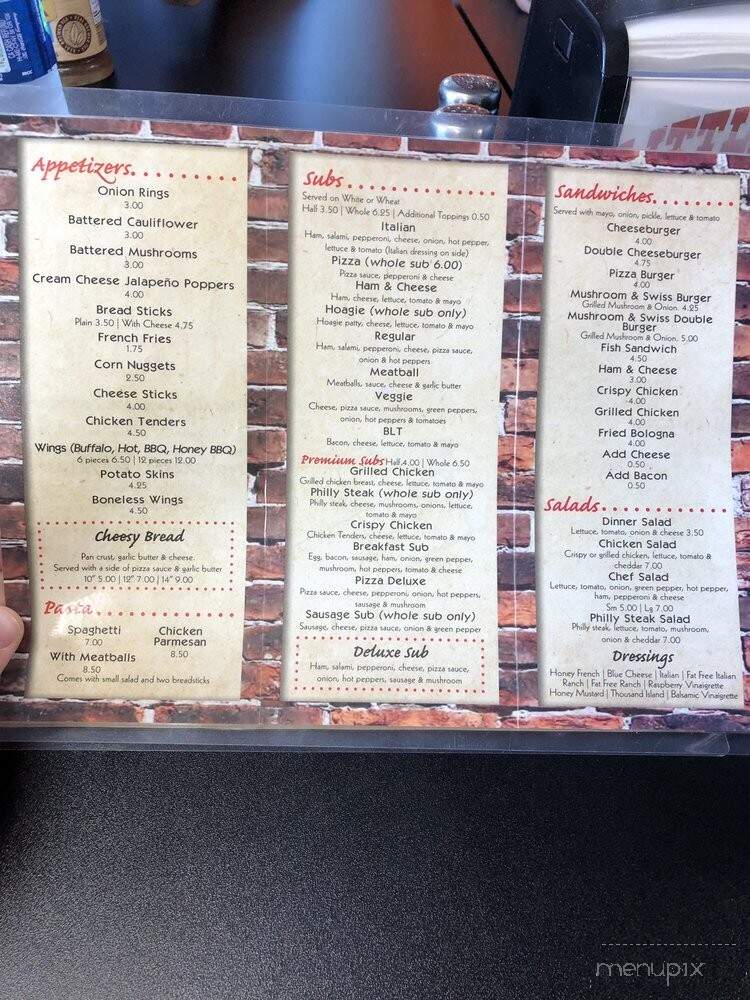 Appetizers
Onion Rings
3.00
Battered Cauliflower
3.00
Battered Mushrooms
3.00
Cream Cheese Jalapeño Poppers
4.00
Bread Sticks
Plain 3.50 | With Cheese 4.75
French Fries
1.75
Corn Nuggets
2.50
Cheese Sticks
4.00
Chicken Tenders
4.50
Wings (Buffalo, Hot, BBQ, Honey BBQ)
6 pieces 6.50 | 12 pieces 12.00
Potato Skins
4.25
Boneless Wings
4.50
Cheesy Bread
Pan crust, garlic butter & cheese.
Served with a side of pizza sauce & garlic butter
10" 5.00 | 12" 7.00 | 14" 9.00
Pasta
Spaghetti
7.00
Chicken
Parmesan
8.50
With Meatballs
8.50
Comes with small salad and two breadsticks
Subs
Served on White or Wheat
Half 3.50 | Whole 6.25 | Additional Toppings 0.50
Italian
Ham, salami, pepperoni, cheese, onion, hot pepper,
lettuce & tomato (Italian dressing on side)
Pizza (whole sub 6.00)
Pizza sauce, pepperoni & cheese
Ham & Cheese
Ham, cheese, lettuce, tomato & mayo
Hoagie (whole sub only)
Hoagie patty, cheese, lettuce, tomato & mayo
Regular
Ham, salami, pepperoni, cheese, pizza sauce,
onion & hot peppers
Meatball
Meatballs, sauce, cheese & garlic butter
Veggie
Cheese, pizza sauce, mushrooms, green peppers,
onion, hot peppers & tomatoes
BLT
Bacon, cheese, lettuce, tomato & mayo
Premium Subs Half 4.00 | Whole 6.50
Grilled Chicken
Grilled chicken breast, cheese, lettuce, tomato & mayo
Philly Steak (whole sub only)
Philly steak, cheese, mushrooms, onions, lettuce,
tomato & mayo
Crispy Chicken
Chicken Tenders, cheese, lettuce, tomato & mayo
Breakfast Sub
Egg, bacon, sausage, ham, onion, green pepper,
mushroom, hot peppers, tomato & cheese
Pizza Deluxe
Pizza sauce, cheese, pepperoni, onion, hot peppers,
sausage & mushroom
Sausage Sub (whole sub only)
Sausage, cheese, pizza sauce, onion & green pepper
Deluxe Sub
Ham, salami, pepperoni, cheese, pizza sauce,
onion, hot peppers, sausage & mushroom
Sandwiches
Served with mayo, onion, pickle, lettuce & tomato
Cheeseburger
4.00
Double Cheeseburger
4.75
Pizza Burger
4.00
Mushroom & Swiss Burger
Grilled Mushroom & Onion. 4.25
Mushroom & Swiss Double
Burger
Grilled Mushroom & Onion. 5.00
Fish Sandwich
4.50
Ham & Cheese
3.00
Crispy Chicken
4.00
Grilled Chicken
4.00
Fried Bologna
4.00
Add Cheese
0.50
Add Bacon
0.50
Salads
Dinner Salad
Lettuce, tomato, onion & cheese 3.50
Chicken Salad
Crispy or grilled chicken, lettuce, tomato &
cheddar 7.00
Chef Salad
Lettuce, tomato, onion, green pepper, hot pepper,
ham, pepperoni & cheese
Sm 5.00 | Lg 7.00
Philly Steak Salad
Philly steak, lettuce, tomato, mushroom,
onion & cheddar 7.00
Dressings
Honey French | Blue Cheese | Italian | Fat Free Italian
Ranch | Fat Free Ranch | Raspberry Vinaigrette
Honey Mustard | Thousand Island | Balsamic Vinaigrette
menupix